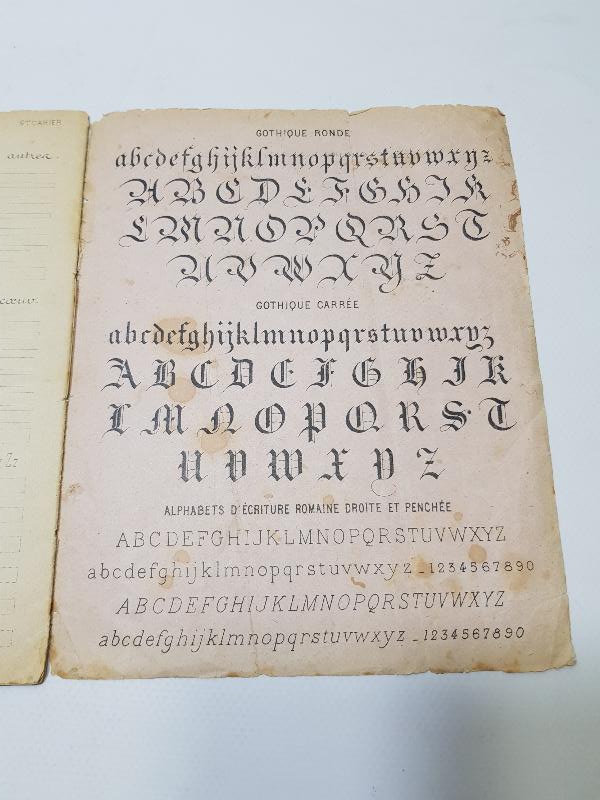 9e CAHIER
autres.
cœur.
Zz
GOTHIQUE RONDE
abcdefghijklmnopqrstuvwxyz
ABCDEFGHIK
LMNOPQRST
UVWXYZ
GOTHIQUE CARRÉE
abcdefghijklmnopqrstuvwxyz
ABCDEFGHIK
LMNOPQRST
UVWXYZ
ALPHABETS D'ÉCRITURE ROMAINE DROITE ET PENCHÉE
ABCDEFGHIJKLMNOPQRSTUVWXYZ
abcdefghijklmnopqrstuvwxyz _ 1234567890
ABCDEFGHIJKLMNOPQRSTUVWXYZ
abcdefghijklmnopqrstuvwxyz _ 1234567890